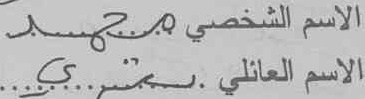 الاسم الشخصي محمد
الاسم العائلي